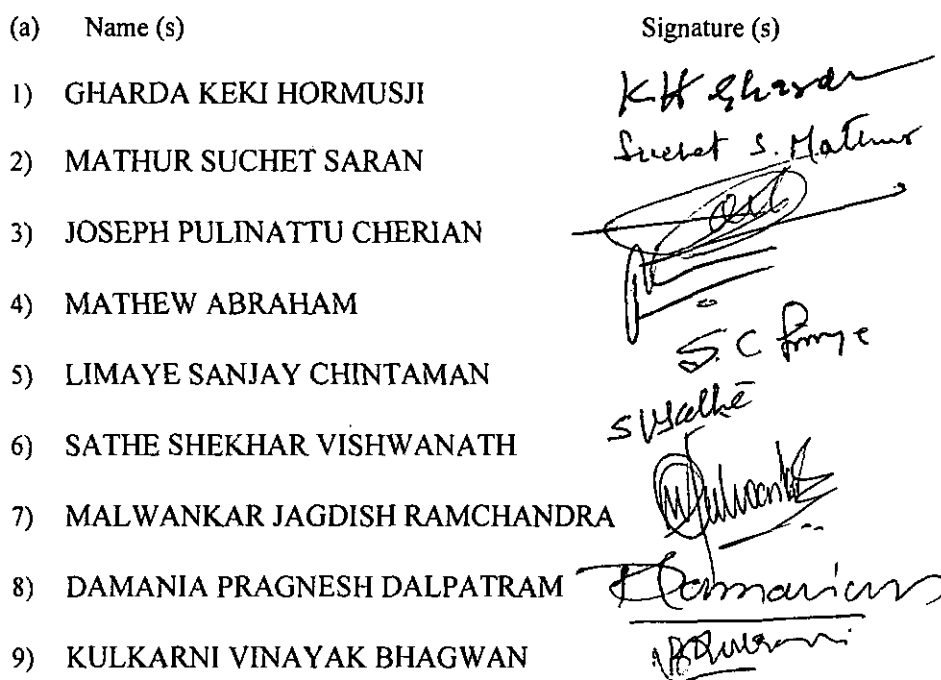 (a) Name (s) Signature (s)
1) GHARDA KEKI HORMUSJI K H Gharda
2) MATHUR SUCHET SARAN Suchet S. Mathur
3) JOSEPH PULINATTU CHERIAN
4) MATHEW ABRAHAM
5) LIMAYE SANJAY CHINTAMAN S. C
6) SATHE SHEKHAR VISHWANATH SVSathe
7) MALWANKAR JAGDISH RAMCHANDRA
8) DAMANIA PRAGNESH DALPATRAM
9) KULKARNI VINAYAK BHAGWAN